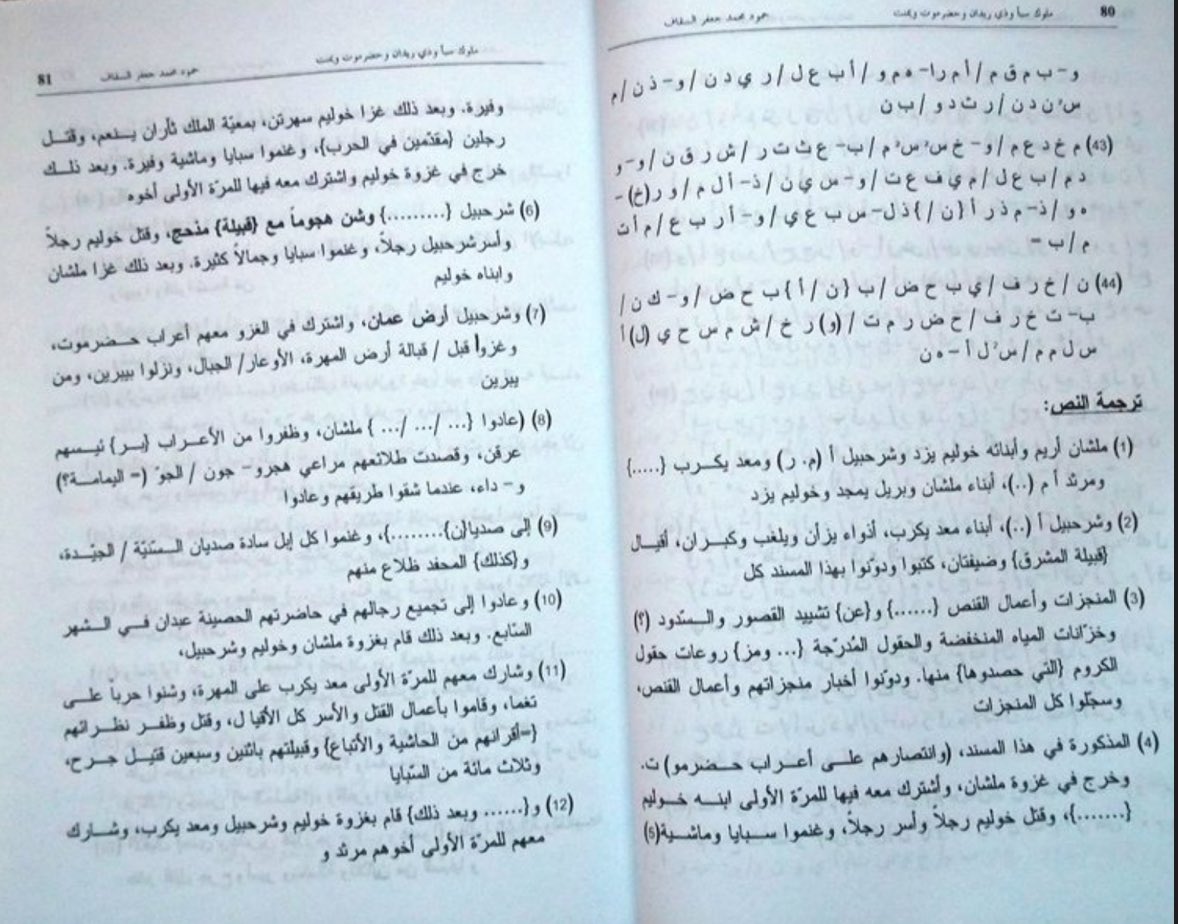 80 ملوك سبأ وذي ريدان وحضرموت ويمنت حمود محمد جعفر السقاف
و– ب م ق م / أ م ر ا– ه م و / أ ب ع ل / ر ي د ن / و– ذ ن / م
س³ ن د ن / ر ث د و / ب ن
(43) م خ د ع م / و– خ س² س³ م / ب– ع ث ت ر / ش ر ق ن / و– و
د م / ب ع ل / م ي ف ع ت / و– س ي ن / ذ– أ ل م / و ر (خ) –
ه و / ذ– م ذ ر أ { ن / } ذ ل– س ب ع ي / و– أ ر ب ع / م أ ت
م / ب –
(44) ن / خ ر ف / ي ب ح ض / ب { ن / أ } ب ح ض / و– ك ن /
ب– ت خ ر ف / ح ض ر م ت / (و) ر خ / ش م س ح ي (ل) أ
س ل م م / س³ ل أ – ه ن
ترجمة النص:
(1) ملشان أريم وأبنائه خوليم يزد وشرحبيل أ (م. ر) ومعد يكرب {.....}
ومرثد أ م (..)، أبناء ملشان وبريل يمجد وخوليم يزد
(2) وشرحبيل أ (..)، أبناء معد يكرب، أذواء يزأن ويلغب وكبران، أقيال
{قبيلة المشرق} وضيفتان، كتبوا ودوّنوا بهذا المسند كل
(3) المنجزات وأعمال القنص {......} و{عن} تشييد القصور والسّدود (؟)
وخزّانات المياه المنخفضة والحقول المُدرّجة {... ومز} روعات حقول
الكروم {التي حصدوها} منها. ودوّنوا أخبار منجزاتهم وأعمال القنص،
وسجّلوا كل المنجزات
(4) المذكورة في هذا المسند، (وانتصارهم على أعراب حضرمو) ت.
وخرج في غزوة ملشان، وأشترك معه فيها للمرّة الأولى ابنه خوليم
{.......}، وقتل خوليم رجلاً وأسر رجلاً، وغنموا سبايا وماشية(5)
ملوك سبأ وذي ريدان وحضرموت ويمنت حمود محمد جعفر السقاف 81
وفيرة. وبعد ذلك غزا خوليم سهرتن، بمعيّة الملك ثأران يهنعم، وقتل
رجلين {مقدّمين في الحرب}، وغنموا سبايا وماشية وفيرة. وبعد ذلك
خرج في غزوة خوليم واشترك معه فيها للمرّة الأولى أخوه
(6) شرحبيل {.........} وشن هجوماً مع {قبيلة} مذحج، وقتل خوليم رجلاً
وأسر شرحبيل رجلاً، وغنموا سبايا وجمالاً كثيرة. وبعد ذلك غزا ملشان
وابناه خوليم
(7) وشرحبيل أرض عمان، واشترك في الغزو معهم أعراب حضرموت،
وغزوا قبل / قبالة أرض المهرة، الأوعار/ الجبال، ونزلوا بيبرين، ومن
يبرين
(8) (عادوا {... /... /... } ملشان، وظفروا من الأعراب {بر} ئيسهم
عرقن، وقصدت طلائعهم مراعي هجرو– جون / الجوّ (= اليمامة؟)
و– داء، عندما شقوا طريقهم وعادوا
(9) إلى صديا{ن}........}، وغنموا كل إبل سادة صديان السّنيّة / الجيّدة،
و{كذلك} المحفد ظلاع منهم
(10) وعادوا إلى تجميع رجالهم في حاضرتهم الحصينة عبدان في الشهر
السّابع. وبعد ذلك قام بغزوة ملشان وخوليم وشرحبيل،
(11) وشارك معهم للمرّة الأولى معد يكرب على المهرة، وشنوا حرباً على
تغما، وقاموا بأعمال القتل والأسر كل الأقيا ل، وقتل وظفر نظرائهم
{=أقرانهم من الحاشية والأتباع} وقبيلتهم باثنين وسبعين قتيل جرح،
وثلاث مائة من السّبايا
(12) و{...... وبعد ذلك} قام بغزوة خوليم وشرحبيل ومعد يكرب، وشارك
معهم للمرّة الأولى أخوهم مرثد و